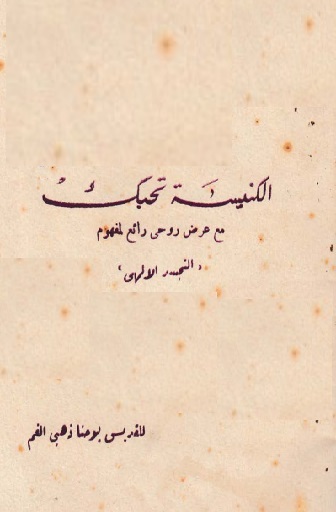 الكنيسة تحبك
مع عرض روحى رائع لمفهوم
« التجسد الالهى »
للقديس يوحنا ذهبى الفم